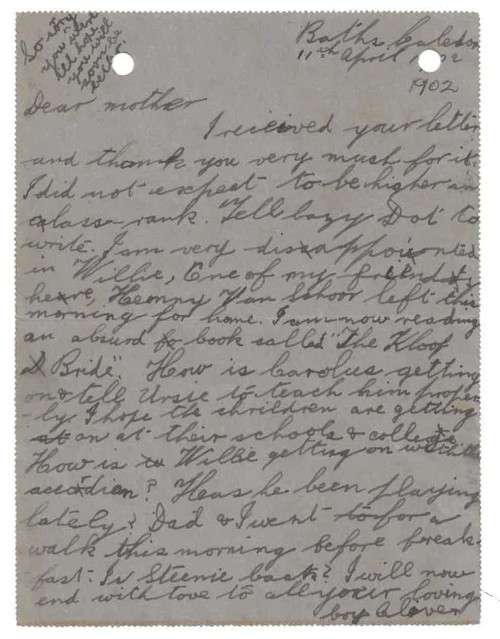 So sorry
you arent
well hope
you will
soon be
better.
Baths Caledon
11th April 1902
1902
Dear mother
I received your letter
and thank you very much for it.
I did not expect to be higher in
class rank. Tell lazy Dot to
write. I am very disappointed
in Willie, One of my friends
here, Henny Van Schoor left this
morning for home. I am now reading
an absurd book called "The Kloof
Bride". How is Carolus getting
on & tell Ursie to teach him proper
-ly I hope the chrildren are getting
on at their schools & college
How is Willie getting on with the
accordien? Heas he been playing
lately? Dad & I went to for a
walk this morning before break-
fast. Is Steenie back? I will now
end with love to all your loving
boy Clover